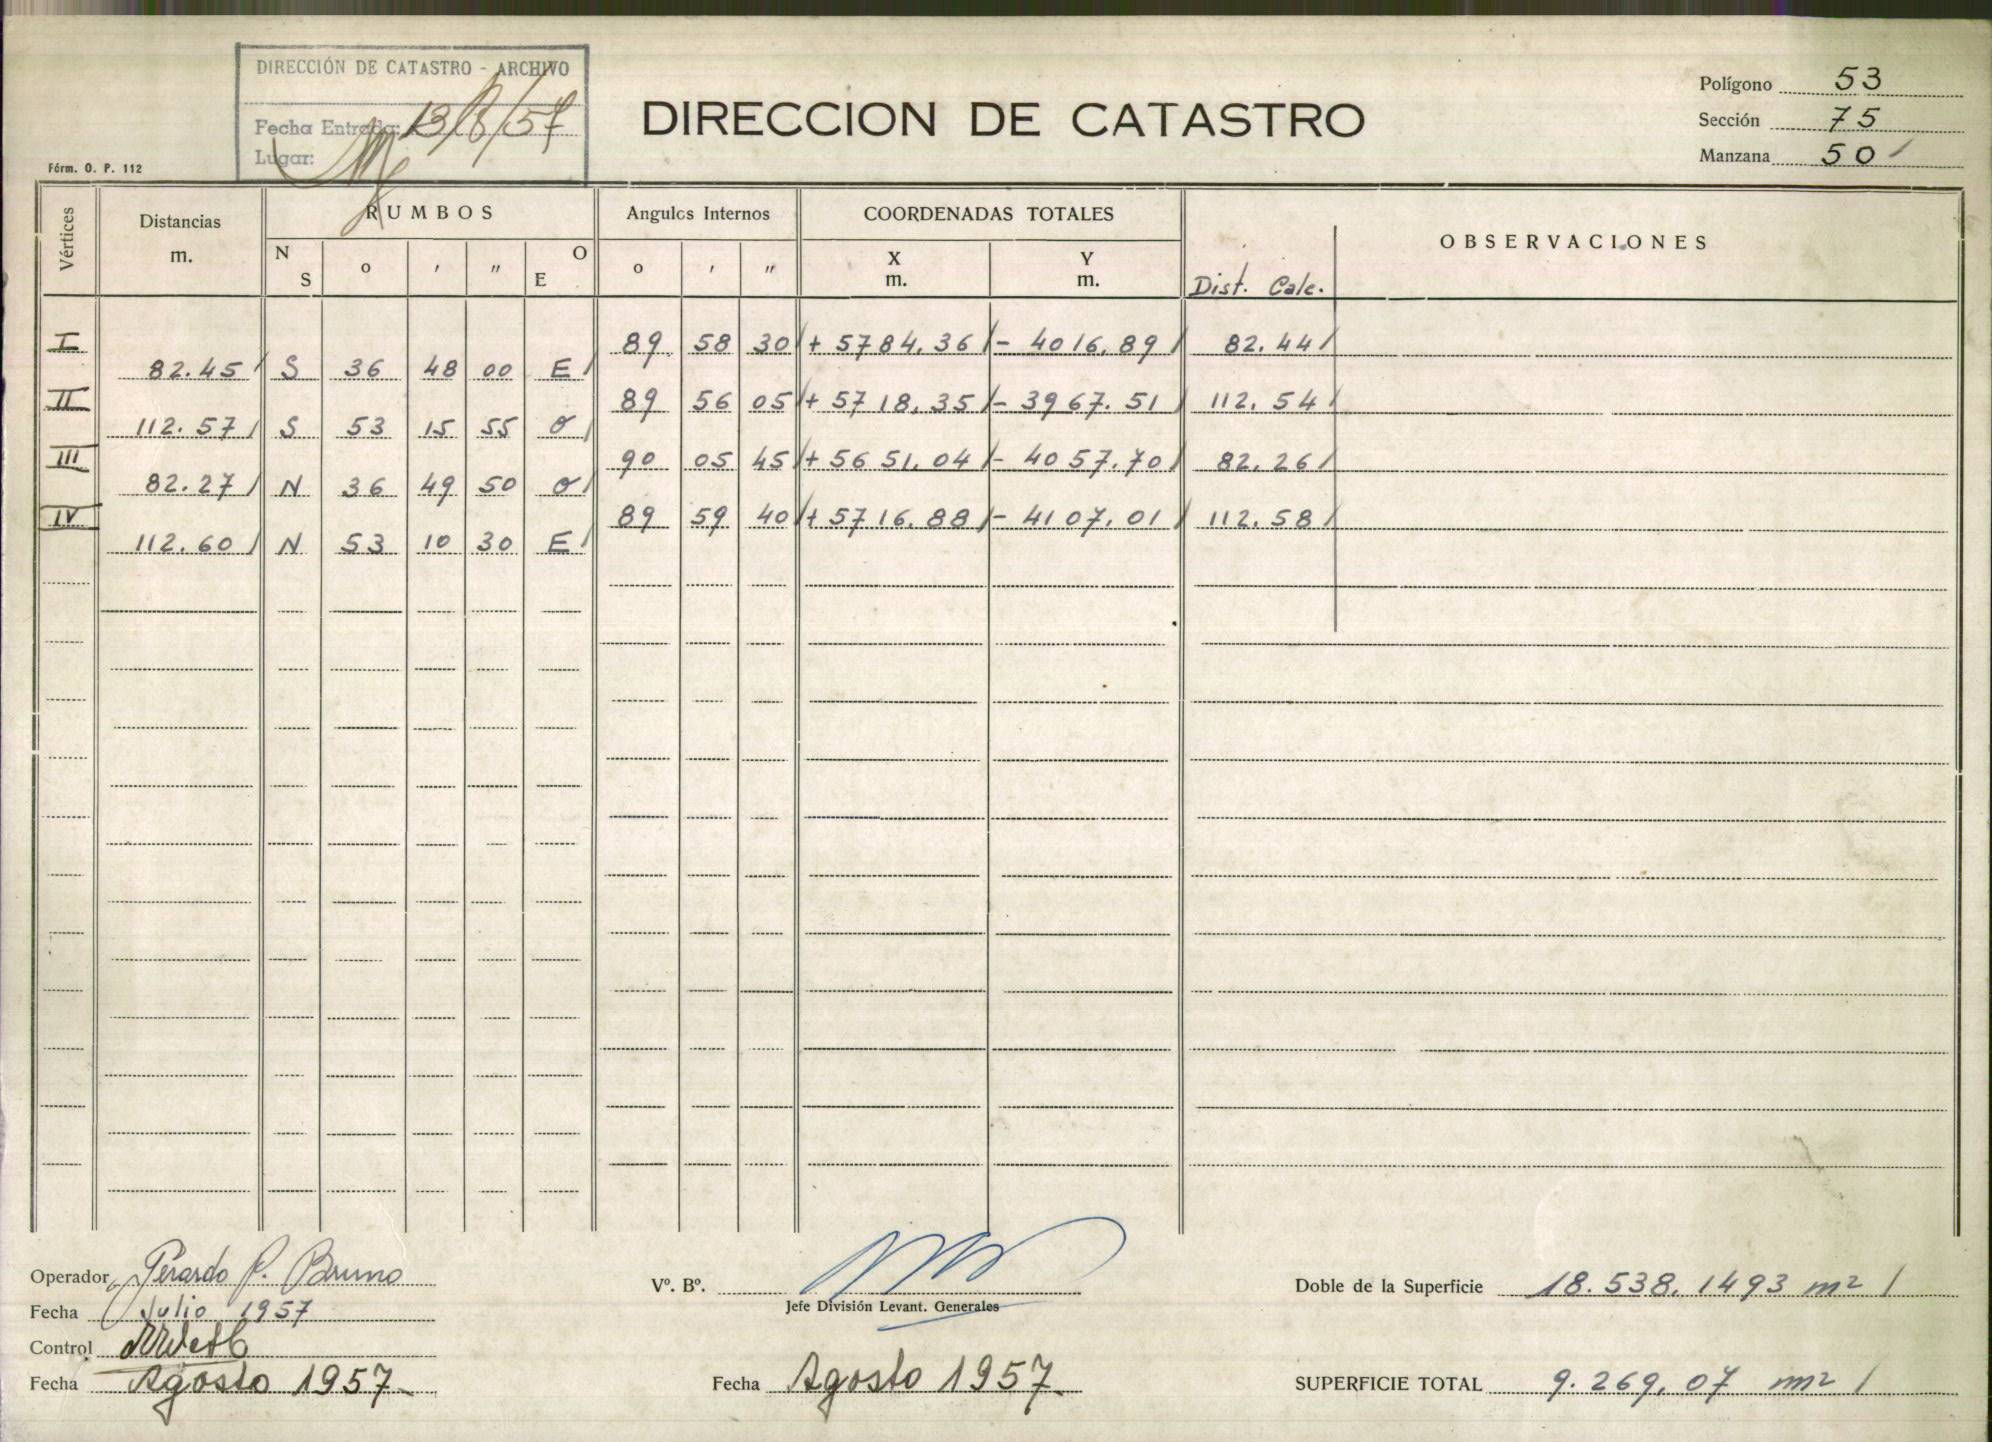 DIRECCIÓN DE CATASTRO - ARCHIVO
Fecha Entrada: 13/8/57
Lugar:
DIRECCION DE CATASTRO
Polígono 53
Sección 75
Manzana 50
Fórm. O. P. 112
Vértices Distancias m. RUMBOS Angulos Internos COORDENADAS TOTALES OBSERVACIONES
N S o ' " E O o ' " X m. Y m. Dist. Calc.
I 89 58 30 + 5784.36 - 4016.89 82.44
82.45 S 36 48 00 E
II 89 56 05 + 5718.35 - 3967.51 112.54
112.57 S 53 15 55 O
III 90 05 45 + 5651.04 - 4057.70 82.26
82.27 N 36 49 50 O
IV 89 59 40 + 5716.88 - 4107.01 112.58
112.60 N 53 10 30 E
Operador Gerardo P. Bruno
Fecha Julio 1957
Control
Fecha Agosto 1957
Vº. Bº.
Jefe División Levant. Generales
Fecha Agosto 1957
Doble de la Superficie 18.538.1493 m2
SUPERFICIE TOTAL 9.269.07 m2